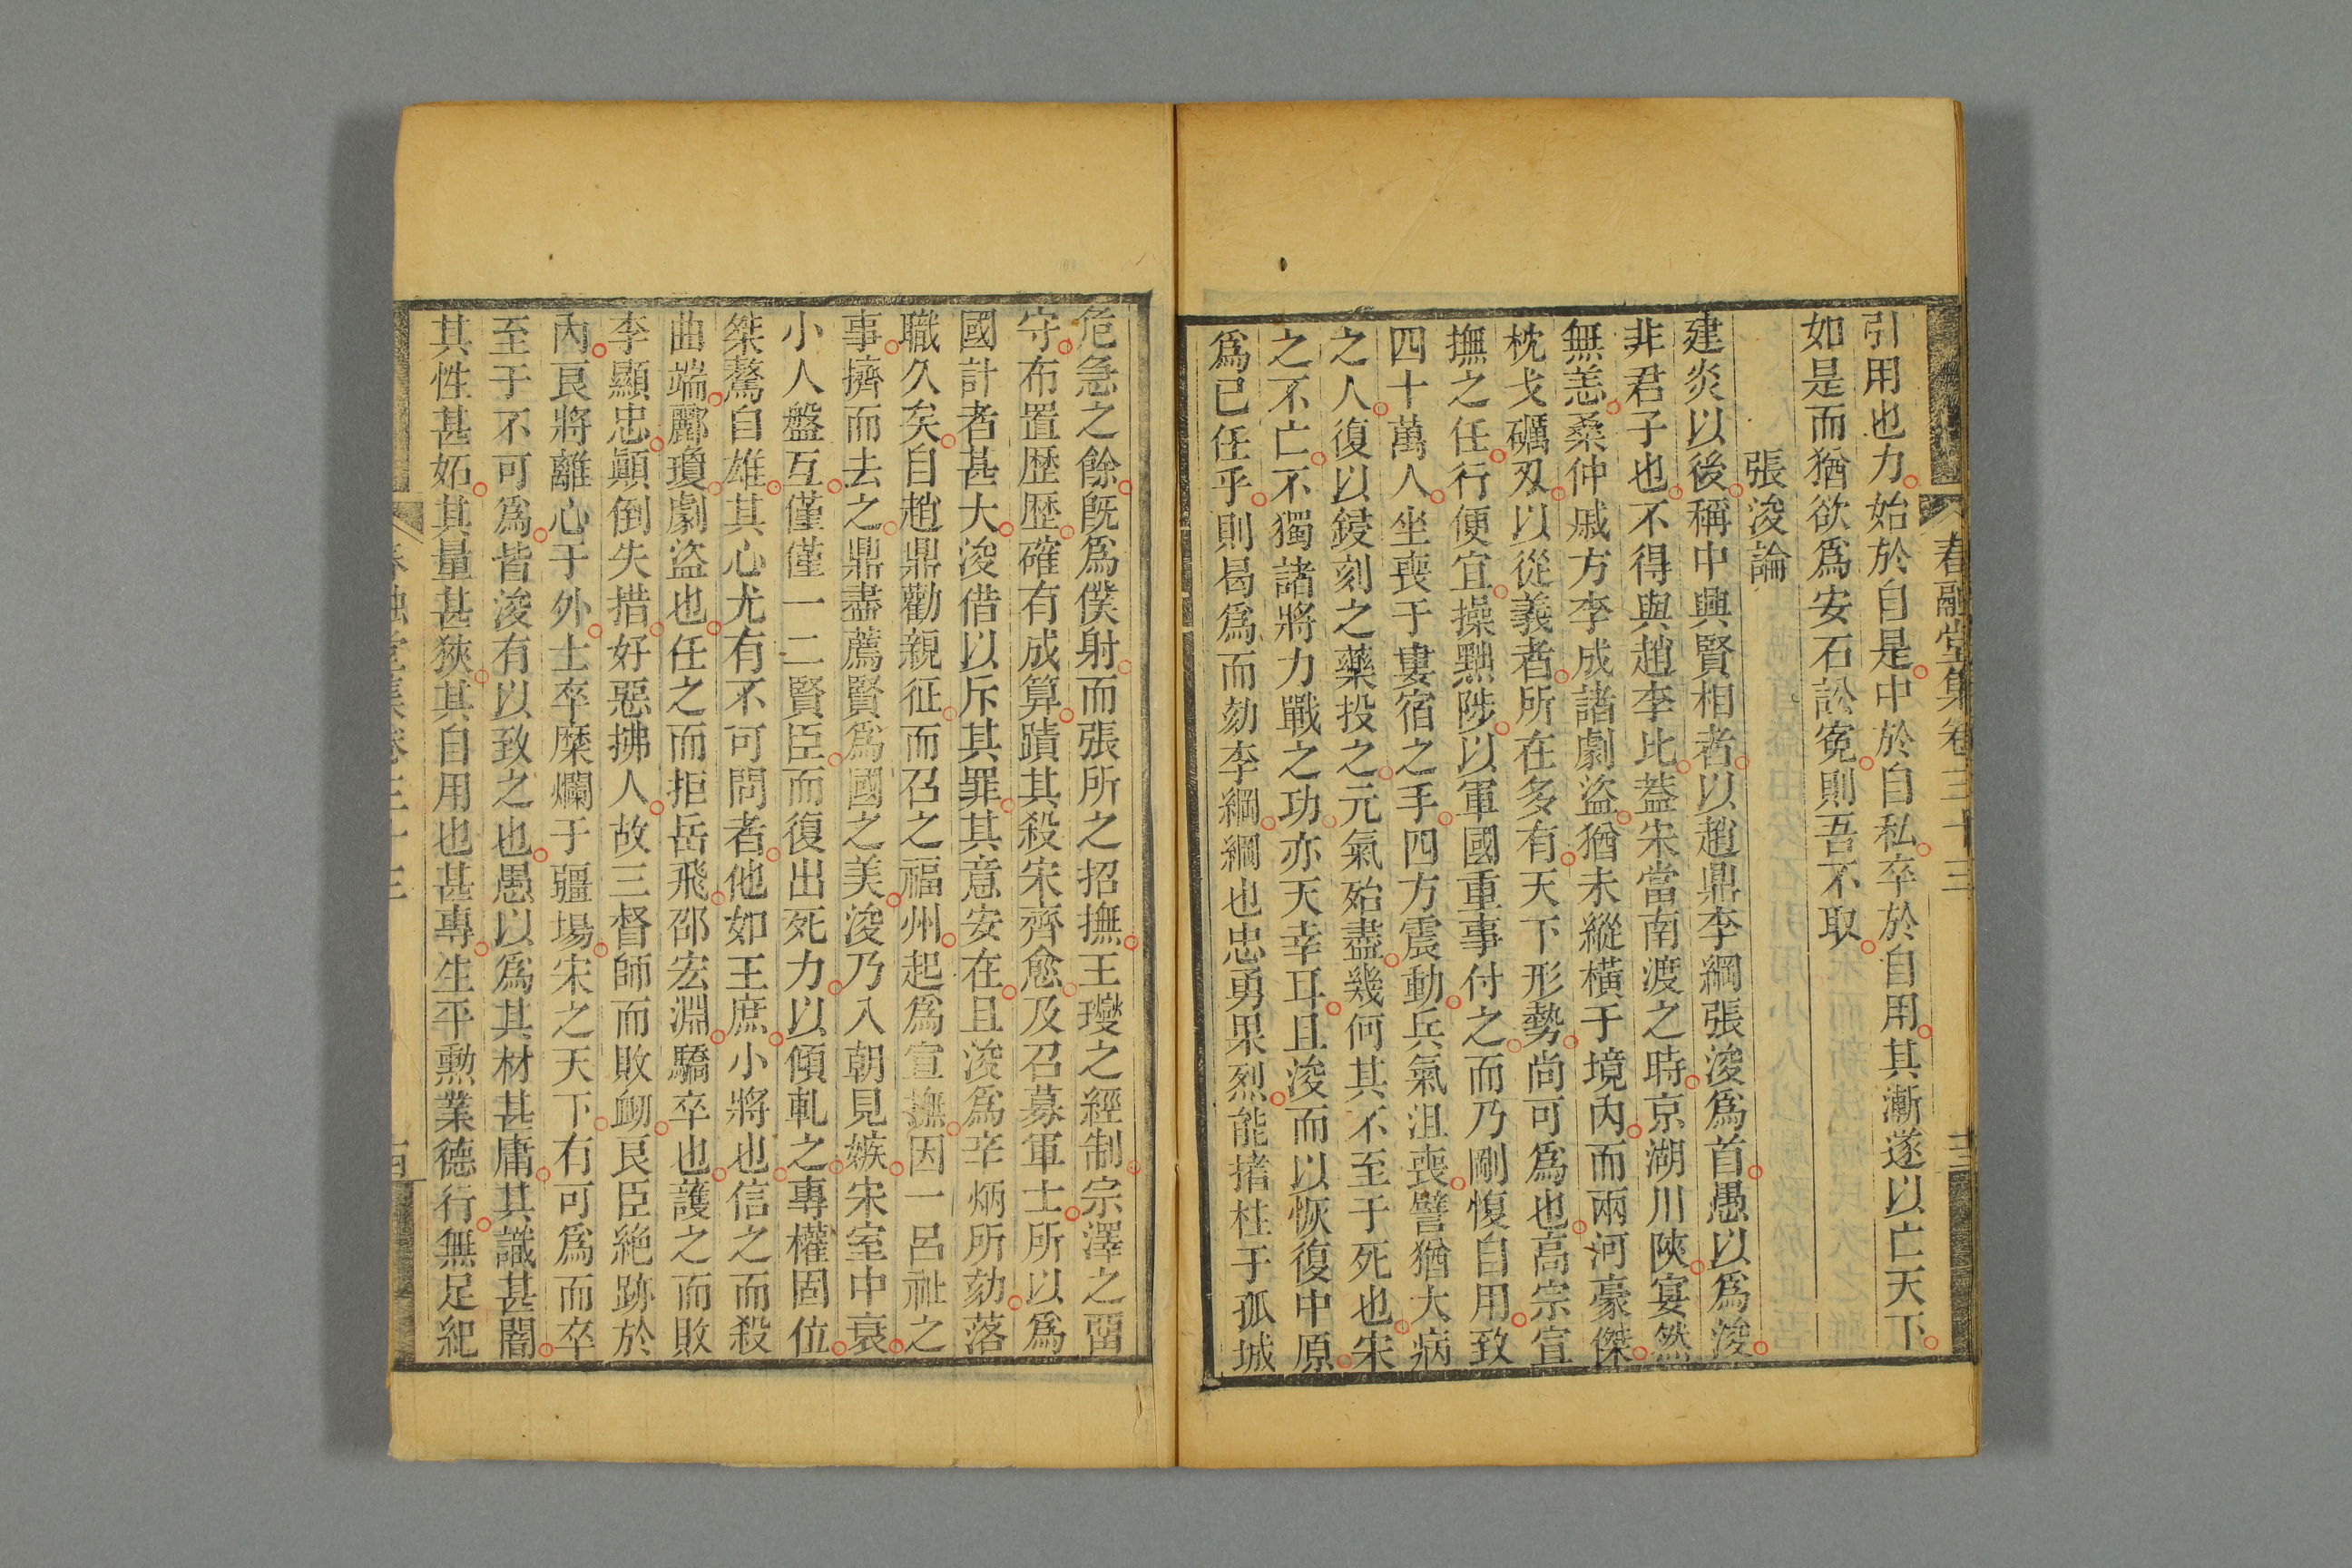 春融堂集卷三十三
十三
引用也力始於自是中於自私卒於自用其漸遂以亡天下
如是而猶欲爲安石訟寃則吾不取
張浚論
建炎以後稱中興賢相者以趙鼎李綱張浚爲首愚以爲浚
非君子也不得與趙李比葢宋當南渡之時京湖川陝宴然
無恙桑仲戚方李成諸劇盜猶未縱橫于境內而兩河豪傑
枕戈礪刄以從義者所在多有天下形勢尚可爲也高宗宣
撫之任行便宜操黜陟以軍國重事付之而乃剛愎自用致
四十萬人坐喪于婁宿之手四方震動兵氣沮喪譬猶大病
之人復以鋟刻之藥投之元氣殆盡幾何其不至于死也宋
之不亡不獨諸將力戰之功亦天幸耳且浚而以恢復中原
爲已任乎則曷爲而劾李綱綱也忠勇果烈能搘柱于孤城
危急之餘旣爲僕射而張所之招撫王𤫉之經制宗澤之畱
守布置歷歷確有成算蹟其殺宋齊愈及召募軍士所以爲
國計者甚大浚借以斥其罪其意安在且浚爲辛炳所劾落
職久矣自趙鼎勸親征而召之福州起爲宣撫因一呂祉之
事擠而去之鼎盡薦賢爲國之美浚乃入朝見嫉宋室中衰
小人盤互僅僅一二賢臣而復出死力以傾軋之專權固位
桀驁自雄其心尤有不可問者他如王庶小將也信之而殺
曲端酈瓊劇盜也任之而拒岳飛邵宏淵驕卒也護之而敗
李顯忠顚倒失措好惡拂人故三督師而敗衂良臣絶跡於
內良將離心于外士卒糜爛于疆場宋之天下右可爲而卒
至于不可爲皆浚有以致之也愚以爲其材甚庸其識甚闇
其性甚妬其量甚狹其自用也甚專生平勲業德行無足紀
春融堂集卷三十三
十四